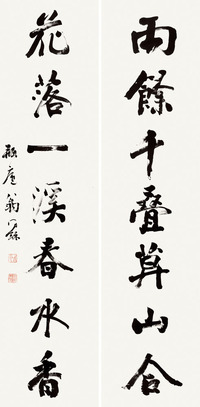 雨餘千叠莫山合
花落一溪春水香
瓶廬翁同龢